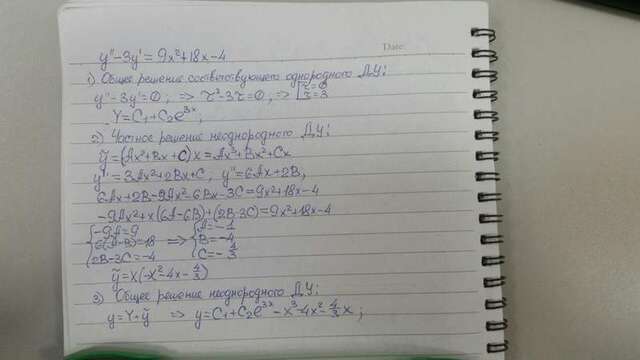 Date:
y'' - 3y' = 9x² + 18x - 4
1) Общее решение соответствующего однородного ДУ:
y'' - 3y' = 0 ; ⇒ r² - 3r = 0 ; ⇒ [r = 0
r = 3
Y = C₁ + C₂e³ˣ ;
2) Частное решение неоднородного ДУ:
ỹ = (Ax² + Bx + C) x = Ax³ + Bx² + Cx
y' = 3Ax² + 2Bx + C ; y'' = 6Ax + 2B,
6Ax + 2B - 9Ax² - 6Bx - 3C = 9x² + 18x - 4
-9Ax² + x(6A - 6B) + (2B - 3C) = 9x² + 18x - 4
{ -9A = 9 { A = -1
6(A - B) = 18 ⇒ B = -4
2B - 3C = -4 C = -4/3
ỹ = x(-x² - 4x - 4/3)
3) Общее решение неоднородного ДУ:
y = Y + ỹ ⇒ y = C₁ + C₂e³ˣ - x³ - 4x² - 4/3 x ;